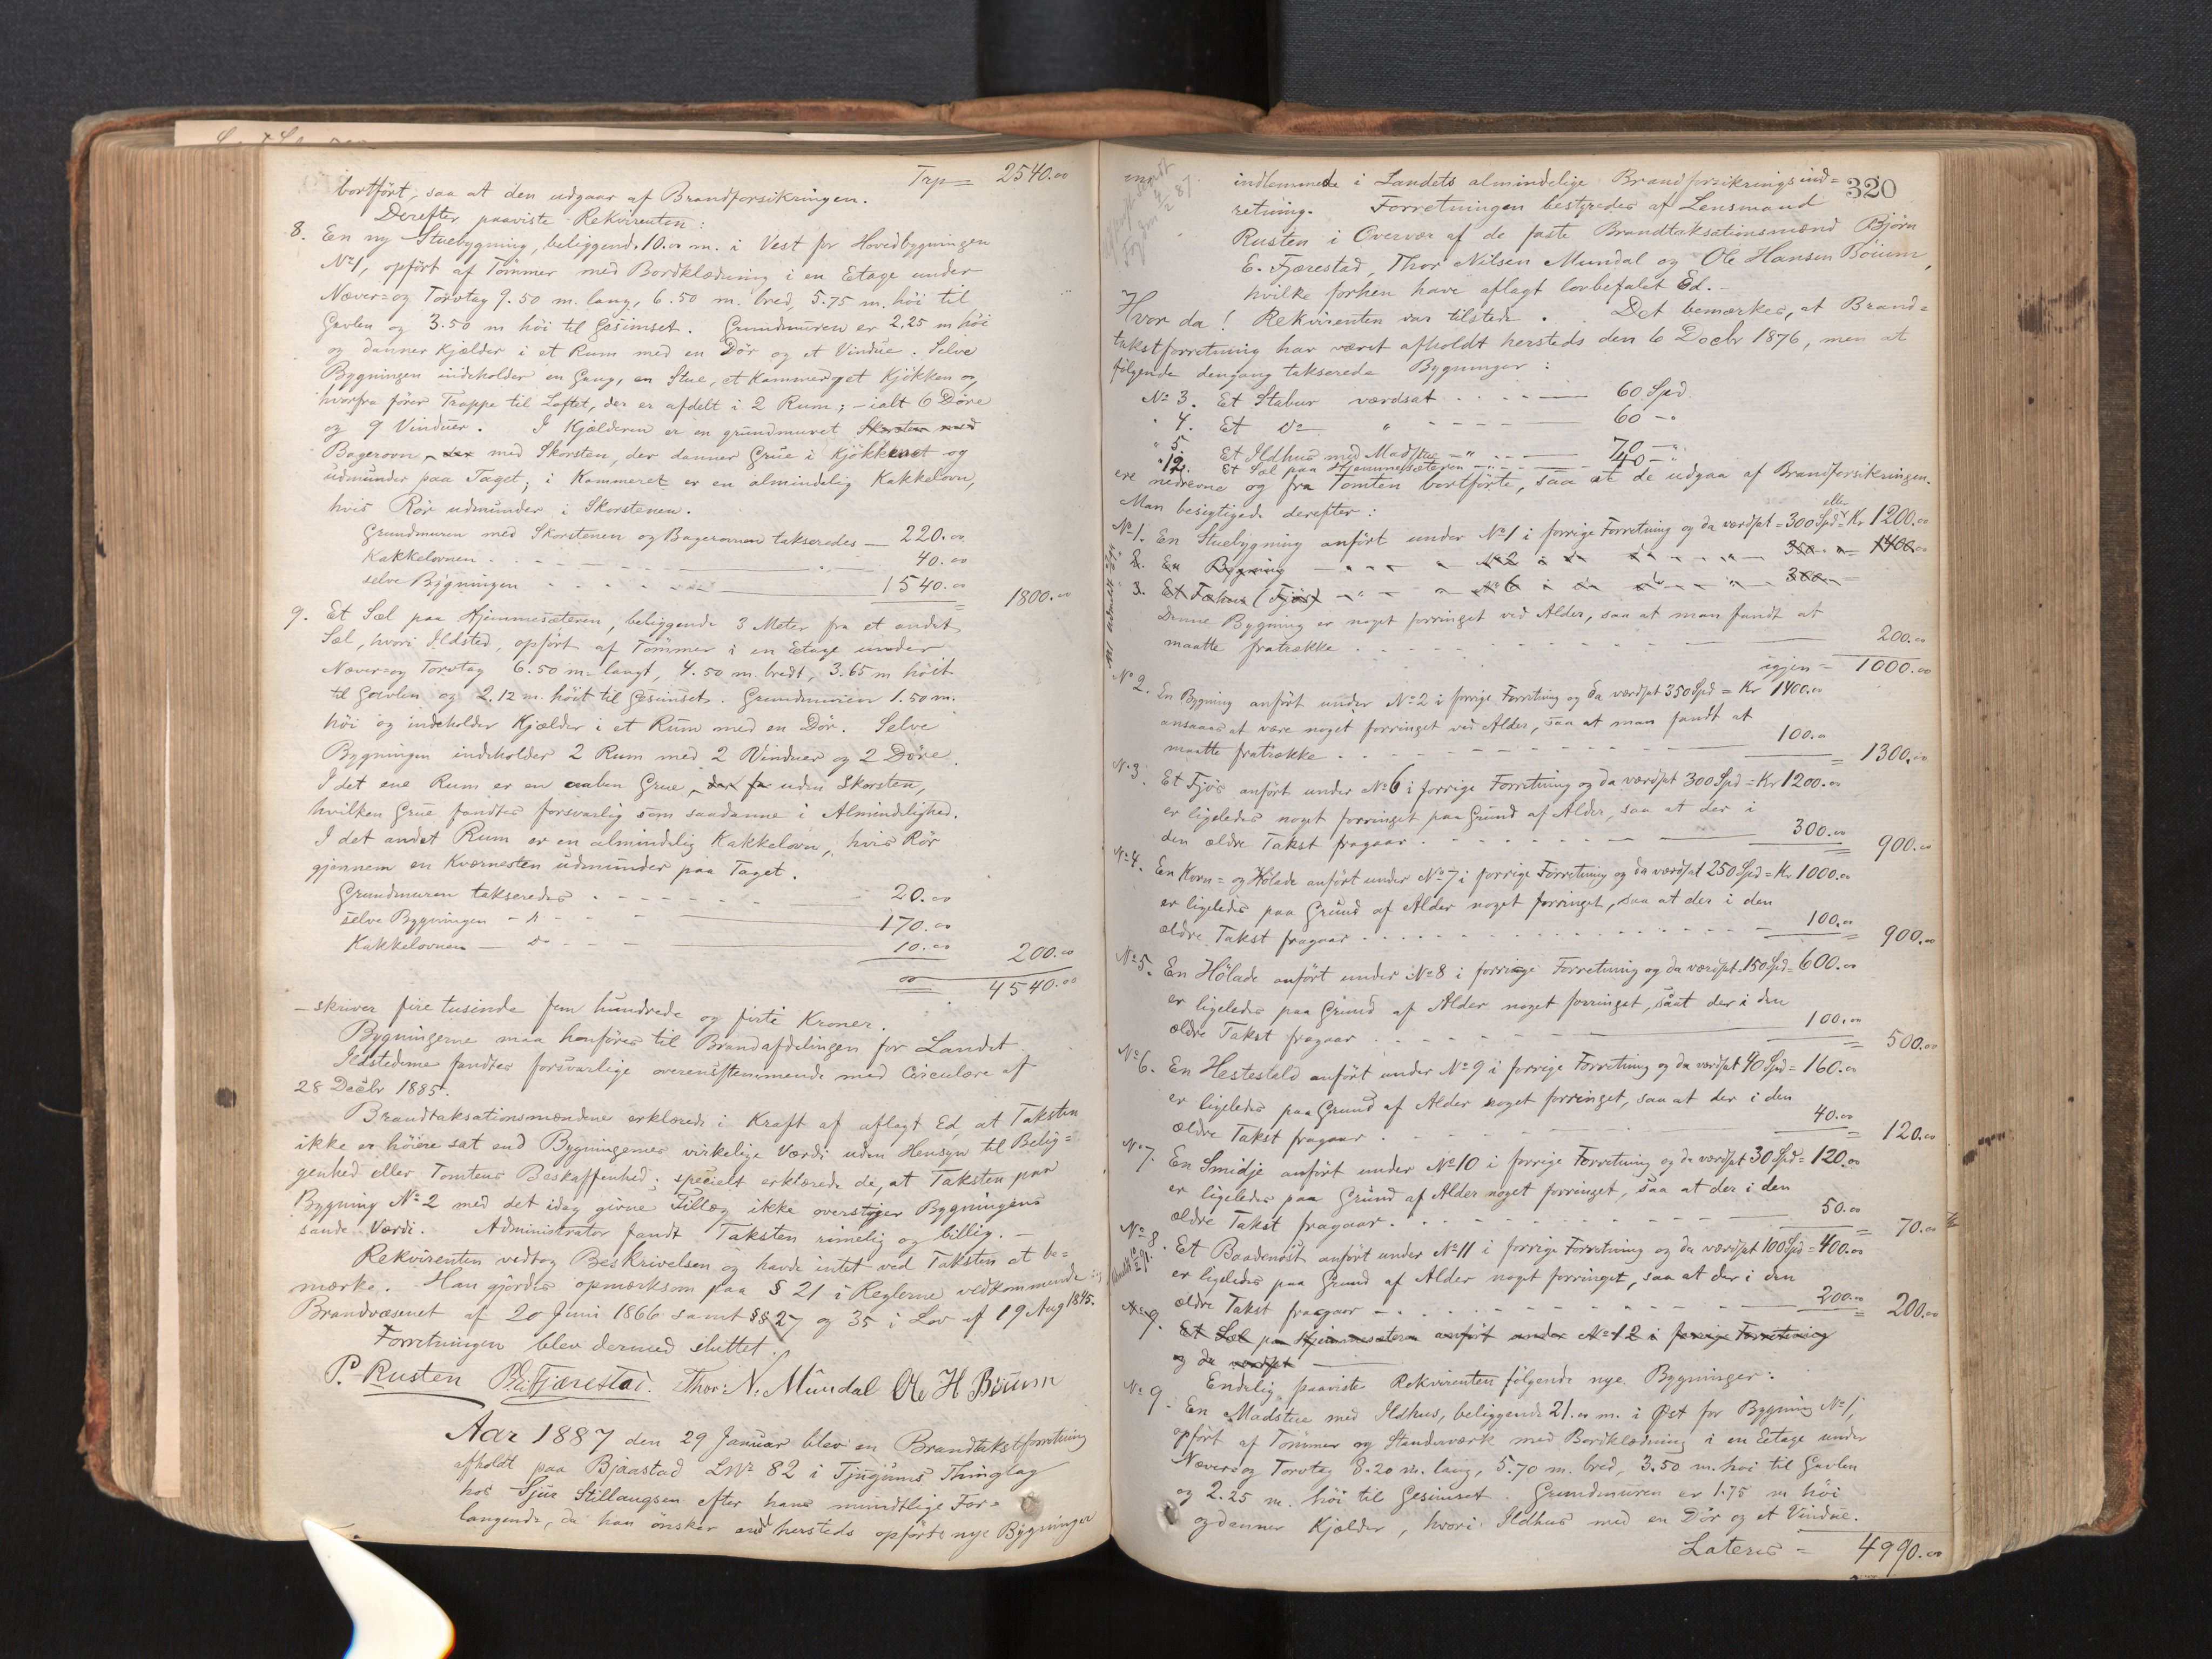 Trp= 2540.00
bortført, saa at den udgaar af Brandforsikringen.
Derefter paaviste Rekvirenten:
8. En ny Stuebygning, beliggende 10.00 m. i Vest for Hovedbygningen
No 1, opført af Tømmer med Bordklædning i en Etage under
Næver= og Torvtag 9.50 m. lang, 6.50 m. bred, 5.75 m. høi til
Gavlen og 3.50 m høi til Gesimset. Grundmuren er 2.25 m høi
og danner Kjælder i et Rum med en Dør og et Vindue. Selve
Bygningen indeholder en Gang, en Stue, et Kammer, et Kjøkken og
hvorfra fører Trappe til Loftet, der er afdelt i 2 Rum; - ialt 6 Døre
og 9 Vinduer. I Kjælderen er en grundmuret Skorsten med
Bagerovn, der med Skorsten, der danner Grue i Kjøkkenet og
udmunder paa Taget; i Kammeret er en almindelig Kakkelovn,
hvis Rør udmunder i Skorstenen.
Grundmuren med Skorstenen og Bagerovnen takseredes — 220.00
Kakkelovnen 40.00
selve Bygningen 1540.00
1800.00
9. Et Sæl paa Hjemmesæteren, beliggende 3 Meter fra et andet
Sæl, hvori Ildsted, opført af Tømmer i en Etage under
Næver= og Torvtag 6.50 m. langt, 4.50 m. bredt, 3.65 m høit
til Gavlen og 2.12 m. høit til Gesimset. Grundmuren 1.50 m.
høi og indeholder Kjælder i et Rum med en Dør. Selve
Bygningen indeholder 2 Rum med 2 Vinduer og 2 Døre.
I det ene Rum er en aaben Grue, der fr uden Skorsten,
hvilken Grue fandtes forsvarlig som saadanne i Almindelighed.
I det andet Rum er en almindelig Kakkelovn, hvis Rør
gjennem en Kværnesten udmunder paa Taget.
Grundmuren takseredes 20.00
selve Bygningen 170.00
Kakkelovnen — do 10.00 200.00
4540.00
- skriver fire tusinde fem hundrede og firti Kroner.
Bygningerne maa henføres til Brandafdelingen for Landet.
Ildstederne fandtes forsvarlige overensstemmende med Circulære af
28 Decbr 1885.
Brandtaksationsmændene erklærede i Kraft af aflagt Ed, at Taksten
ikke er høiere sat end Bygningernes virkelige Værdi uden Hensyn til Belig=
genhed eller Tomtens Beskaffenhed; specielt erklærede de, at Taksten paa
Bygning No 2 med det idag givne Tillæg ikke overstiger Bygningens
sande Værdi. Administrator fandt Taksten rimelig og billig. —
Rekvirenten vedtog Beskrivelsen og havde intet ved Taksten at be=
mærke. Han gjordes opmærksom paa § 21 i Reglerne vedkommende
Brandvæsenet af 20 Juni 1866 samt §§ 27 og 35 i Lov af 19 Aug 1845.
Forretningen blev dermed sluttet.
P. Rusten Fjærestad. Thor N. Mundal Ole H Bøium
Aar 1887 den 29 Januar blev en Brandtakstforretning
afholdt paa Bjaastad LNo 82 i Tjugums Thinglag
hos Sjur Stillaugsen efter hans mundtlige For=
langende, da han ønsker hersteds opførte nye Bygninger
320
indlemmede i Landets almindelige Brandforsikringsind=
retning. Forretningen bestyredes af Lensmand
Rusten i Overvær af de faste Brandtaksationsmænd Bjørn
E. Fjærestad, Thor Nilsen Mundal og Ole Hansen Bøium,
hvilke forhen have aflagt lovbefalet Ed. —
Hvor da! Rekvirenten var tilstede. Det bemærkes, at Brand=
takstforretning har været afholdt hersteds den 6 Decbr 1876, men at
følgende dengang takserede Bygninger:
No 3. Et Stabur værdsat 60 Spd
" 4. Et do " 60 - "
" 5. Et Ildhus med Madstue - " 70 - "
" 12. Et Sæl paa Hjemmesæteren - " 40 - "
ere nedrevne og fra Tomten bortførte, saa at de udgaa af Brandforsikringen.
Man besigtigede derefter:
No 1. En Stuebygning anført under No 1 i forrige Forretning og da værdsat = 300 Spd eller Kr 1200.00
2. En Bygning No 2 350 1400.00
3. Et Fæhus (Fjøs) No 6 300
Denne Bygning er noget forringet ved Alder, saa at man fandt at
maatte fratrække 200.00
igjen = 1000.00
No 2. En Bygning anført under No 2 i forrige Forretning og da værdsat 350 Spd = Kr 1400.00
ansaaes at være noget forringet ved Alder, saa at man fandt at
maatte fratrække 100.00 = 1300.00
No 3. Et Fjøs anført under No 6 i forrige Forretning og da værdsat 300 Spd = Kr 1200.00
er ligeledes noget forringet paa Grund af Alder, saa at der i
den ældre Takst fragaar 300.00 = 900.00
No 4. En Korn= og Hølade anført under No 7 i forrige Forretning og da værdsat 250 Spd = Kr. 1000.00
er ligeledes paa Grund af Alder noget forringet, saa at der i den
ældre Takst fragaar 100.00 = 900.00
No 5. En Hølade anført under No 8 i forrige Forretning og da værdsat 150 Spd = 600.00
er ligeledes paa Grund af Alder noget forringet, saat der i den
ældre Takst fragaar 100.00 = 500.00
No 6. En Hestestald anført under No 9 i forrige Forretning og da værdsat 40 Spd = 160.00
er ligeledes paa Grund af Alder noget forringet, saa at der i den
ældre Takst fragaar 40.00 = 120.00
No 7. En Smidje anført under No 10 i forrige Forretning og da værdsat 30 Spd = 120.00
er ligeledes paa Grund af Alder noget forringet, saa at der i den
ældre Takst fragaar 50.00 = 70.00
No 8. Et Baadenøst anført under No 11 i forrige Forretning og da værdsat 100 Spd = 400.00
er ligeledes paa Grund af Alder noget forringet, saa at der i den
ældre Takst fragaar 200.00 = 200.00
No 9. Et Sæl paa Hjemmesæteren anført under No 12 i forrige Forretning
og da værdsat
Endelig paaviste Rekvirenten følgende nye Bygninger:
No 9. En Madstue med Ildhus, beliggende 21.00 m. i Øst for Bygning No 1,
opført af Tømmer og Standerværk med Bordklædning i en Etage under
Næver= og Torvtag 8.20 m. lang, 5.70 m. bred, 3.50 m. høi til Gavlen
og 2.25 m. høi til Gesimset. Grundmuren er 1.75 m høi
og danner Kjælder, hvori Ildhus med en Dør og et Vindue.
Lateris = 4990.00